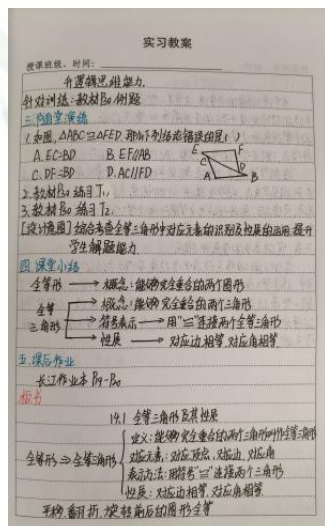 实习教案
授课班级、时间:
升逻辑思维能力.
针对训练:教材P30例题
三.随堂演练
1.如图,△ABC≌△FED,那么下列结论错误的是( )
A. EC=BD B. EF//AB
C. DF=BD D. AC//FD
E F C D A B
2.教材P30练习T1,
3.教材P30练习T2,
[设计意图] 综合考查全等三角形中对应元素的识别及性质的运用,提升
学生解题能力
四.课堂小结
全等形 → 概念:能够完全重合的两个图形
全等三角形 → 概念:能够完全重合的两个三角形
→ 符号表示 → 用"≌"连接两个全等三角形
→ 性质 → 对应边相等,对应角相等
五.课后作业
长江作业本P19-P20
板书
14.1 全等三角形及其性质
定义:能够完全重合的两个三角形叫作全等三角形
全等形⇒全等三角形 对应元素:对应顶点、对应边、对应角
表示方法:用符号"≌"连接两个三角形
性质:对应边相等,对应角相等
平移、翻折、旋转前后的图形全等